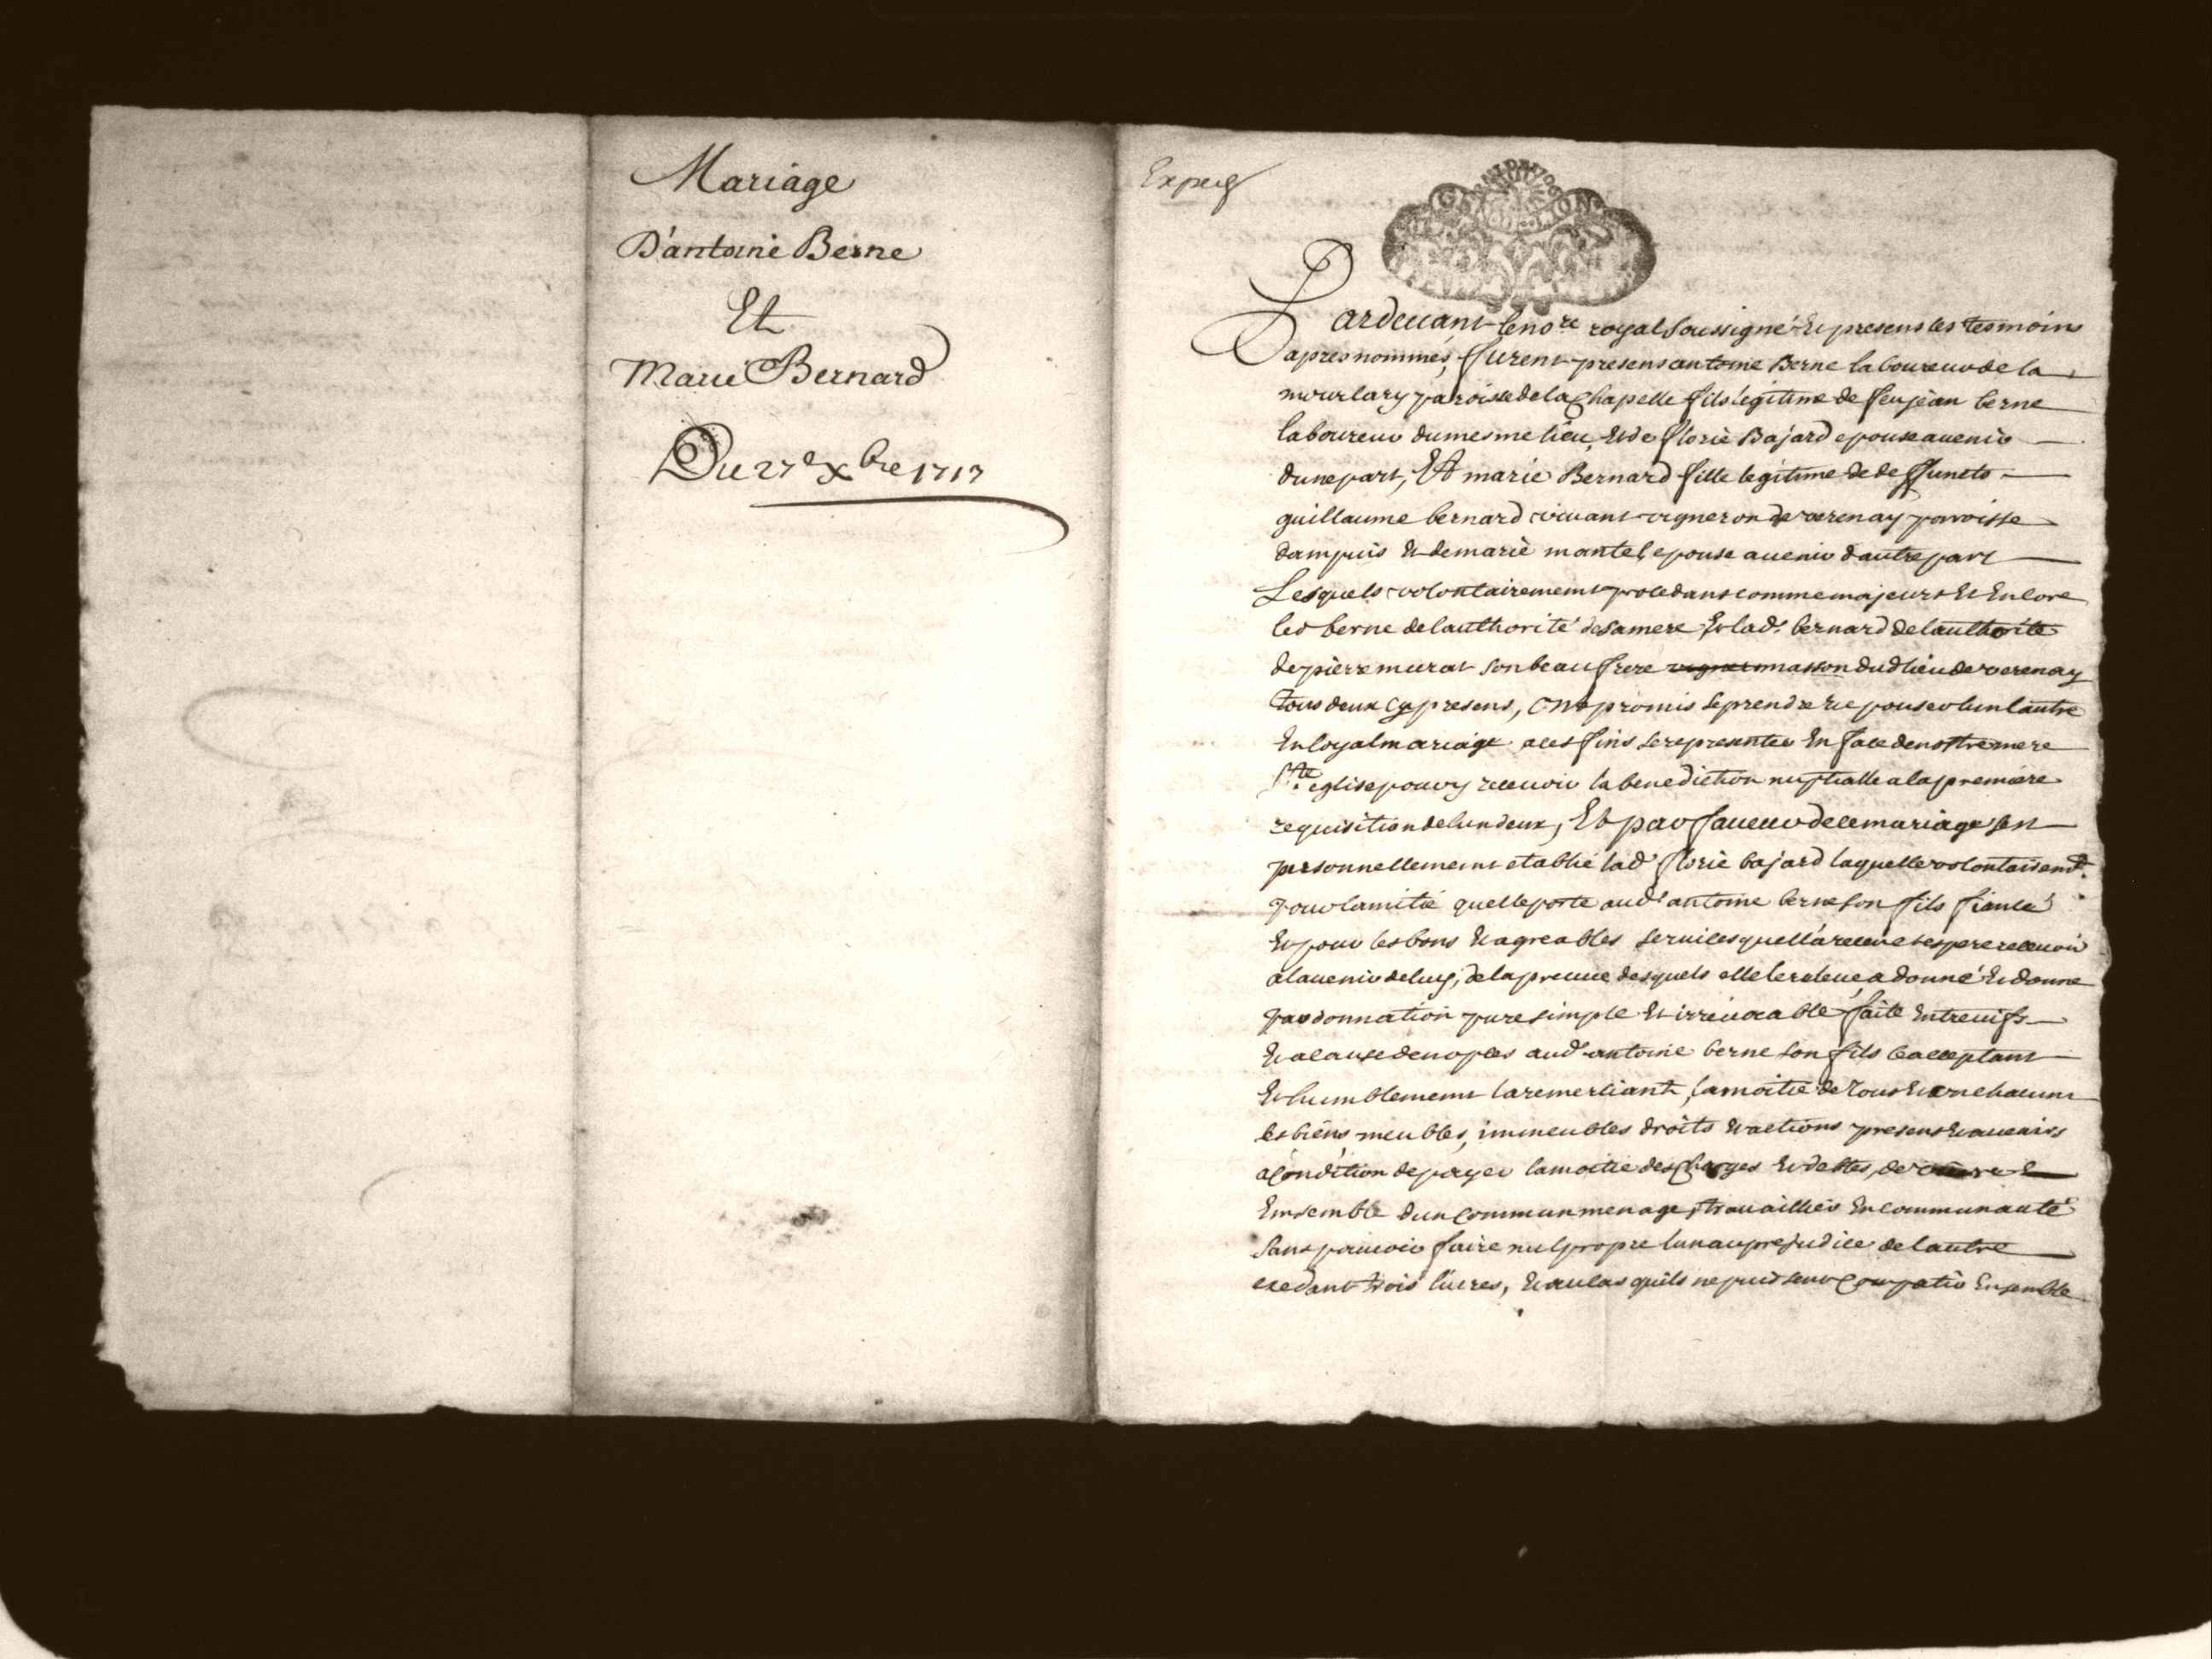 Mariage
D'antoine Berne
Et
Marie Bernard
Du 27e xbre 1717
Exped
GENERALITE DE LION
Pardeuant le nore royal soussigné Et presens les tesmoins
apres nommés, furent presens antoine Berne laboureur de la
mourlary paroisse de la Chapelle fils legitime de feu jean berne
laboureur du mesme lieu, Et de florie Bajard epoux auenir
dune part, Et marie Bernard fille legitime de deffuncts
guillaume bernard viuant vigneron de verenay parroisse
dampuis Et de marie mantel, epouse auenir dautre part
Lesquels volontairement procedans comme majeurs Et Encore
led berne de lauthorité de sa mere Et lad. bernard de lauthorite
de pierre murat son beau frere masson dud lieu de verenay
tous deux cy presens, Ont promis se prendre Et epouser lun lautre
En loyal mariage a ces fins se representer En face de nostre mere
Ste eglise pour y receuoir la benediction nuptialle a la premiere
requisition de lun deux, Et par faueur de ce mariage sest
personnellement etablie lad florie bajard laquelle volontairemt.
pour lamitié quelle porte aud antoine berne son fils fiancé
Et pour les bons Et agreables seruices quella receu et espere receuoir
a lauenir de luy, de la preuue desquels elle le releue, a donné Et donne
par donnation pure simple Et irreuocable faite Entreuifs
Et a cause de nopces aud antoine berne son fils ce acceptant
Et humblement la remerciant, la moitié de tous Et un chacuns
ses biens meubles, immeubles droits Et actions presens Et auenirs
a Condition de payer la moitié des Charges Et debtes, de
Ensemble dun Commun menage, trauailler En communauté
sans pouuoir faire nul propre lun au prejudice de lautre
exedant trois liures, Et au cas quils ne puissent Compatir Ensemble